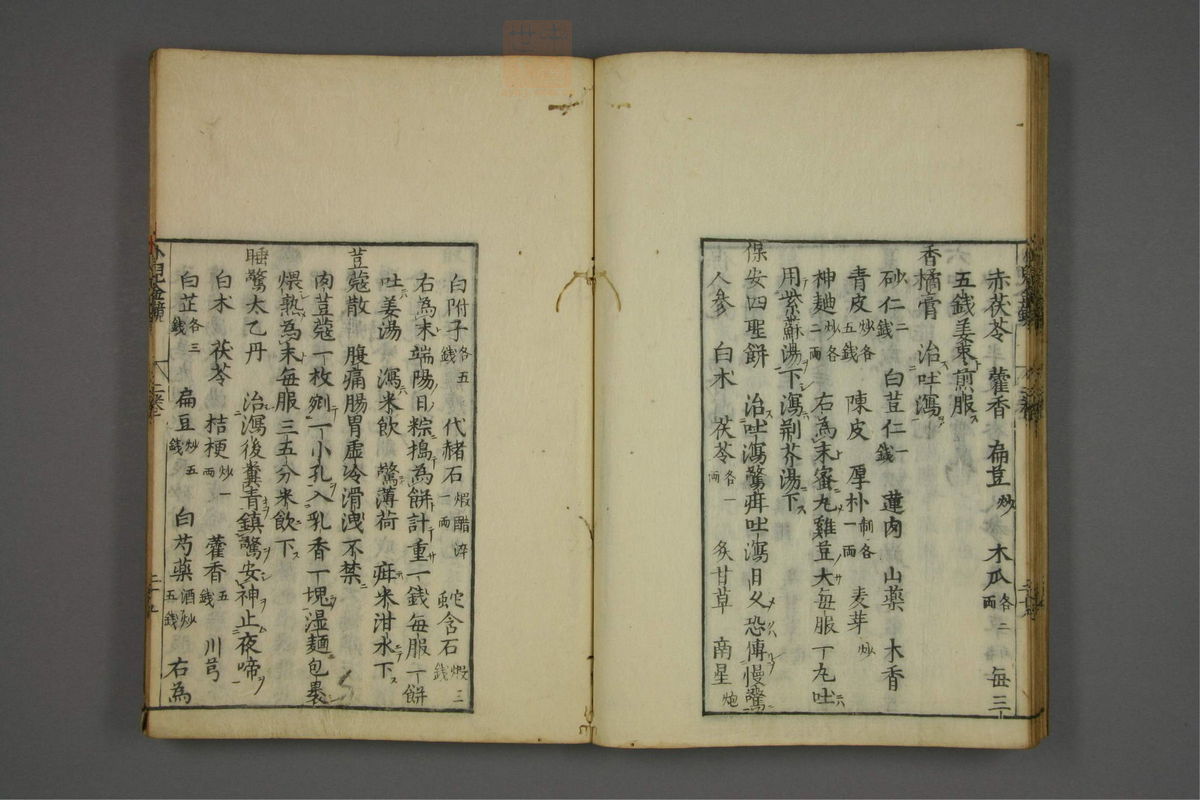 赤茯苓 藿香 扁荳炒 木瓜各二両 每三
五錢姜枣煎服
香橘膏 治吐瀉
砂仁二錢 白荳仁一錢 蓮肉 山藥 木香
青皮炒各五錢 陳皮 厚朴制各一両 麦芽炒
神麯炒各二両 右為末蜜丸雞荳大每服一丸吐
用紫蘇湯下瀉荊芥湯下
保安四聖餅 治吐瀉驚疳吐瀉日久恐傳慢驚
人參 白朮 茯苓各一両 炙甘草 南星炮
白附子各五錢 代赭石煆醋淬一両 蛇含石煆三錢
右為末端陽日粽搗為餅計重一錢每服一餅
吐姜湯 瀉米飲 驚薄荷 疳米泔水下
荳蔻散 腹痛腸胃虚冷滑洩不禁
肉荳蔻一枚剜一小孔入乳香一塊湿麺包裹
煨熟為末每服三五分米飲下
睡驚太乙丹 治瀉後糞青鎮驚安神止夜啼
白朮 茯苓 桔梗炒一両 藿香五錢 川芎
白芷各三錢 扁豆炒五錢 白芍藥酒炒五錢 右為